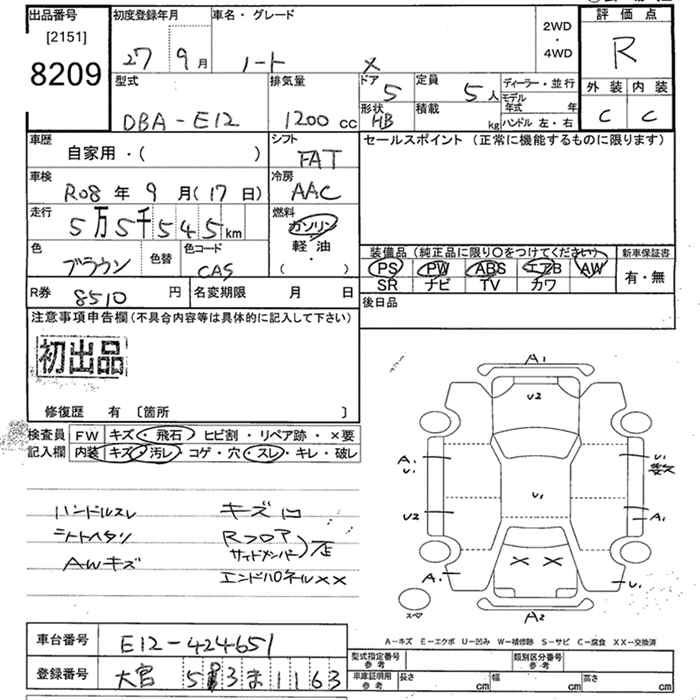 出品番号
[2151]
8209
初度登録年月
27 9月
車名・グレード
ノート X
2WD
・
4WD
評価点
R
外装 内装
C C
型式
DBA-E12
排気量
1200 cc
ドア 5
形状 HB
定員 5人
積載 kg
ディーラー・並行
モデル年式 年
ハンドル 左・右
車歴
自家用・( )
シフト
FAT
セールスポイント(正常に機能するものに限ります)
車検
R08年 9月(17日)
冷房
AAC
走行
5万5千545km
燃料
ガソリン
軽油
( ・ )
色
ブラウン
色替
色コード
CAS
装備品(純正品に限り〇をつけてください)
新車保証書
PS PW ABS エアB AW
SR ナビ TV カワ
有・無
R券 8510円
名変期限 月 日
後日品
注意事項申告欄(不具合内容等は具体的に記入して下さい)
初出品
修復歴 有 [箇所 ]
検査員記入欄
FW キズ・飛石・ヒビ割・リペア跡・×要
内装 キズ・汚レ・コゲ・穴・スレ・キレ・破レ
ハンドルスレ キズ
シートヘタリ Rフロア
サイドメンバー
AWキズ
エンドパネルXX
A1
U2
A1 U1
U1
U1
U2
A1
X X
A1
U1
スペア
A2
A-キズ E-エクボ U-凹み W-補修跡 S-サビ C-腐食 XX-交換済
車台番号 E12-424651
登録番号 大宮 5 3 ま 1163
型式指定番号 参考
類別区分番号 参考
車庫証明用 参考
長さ cm 幅 cm 高さ cm